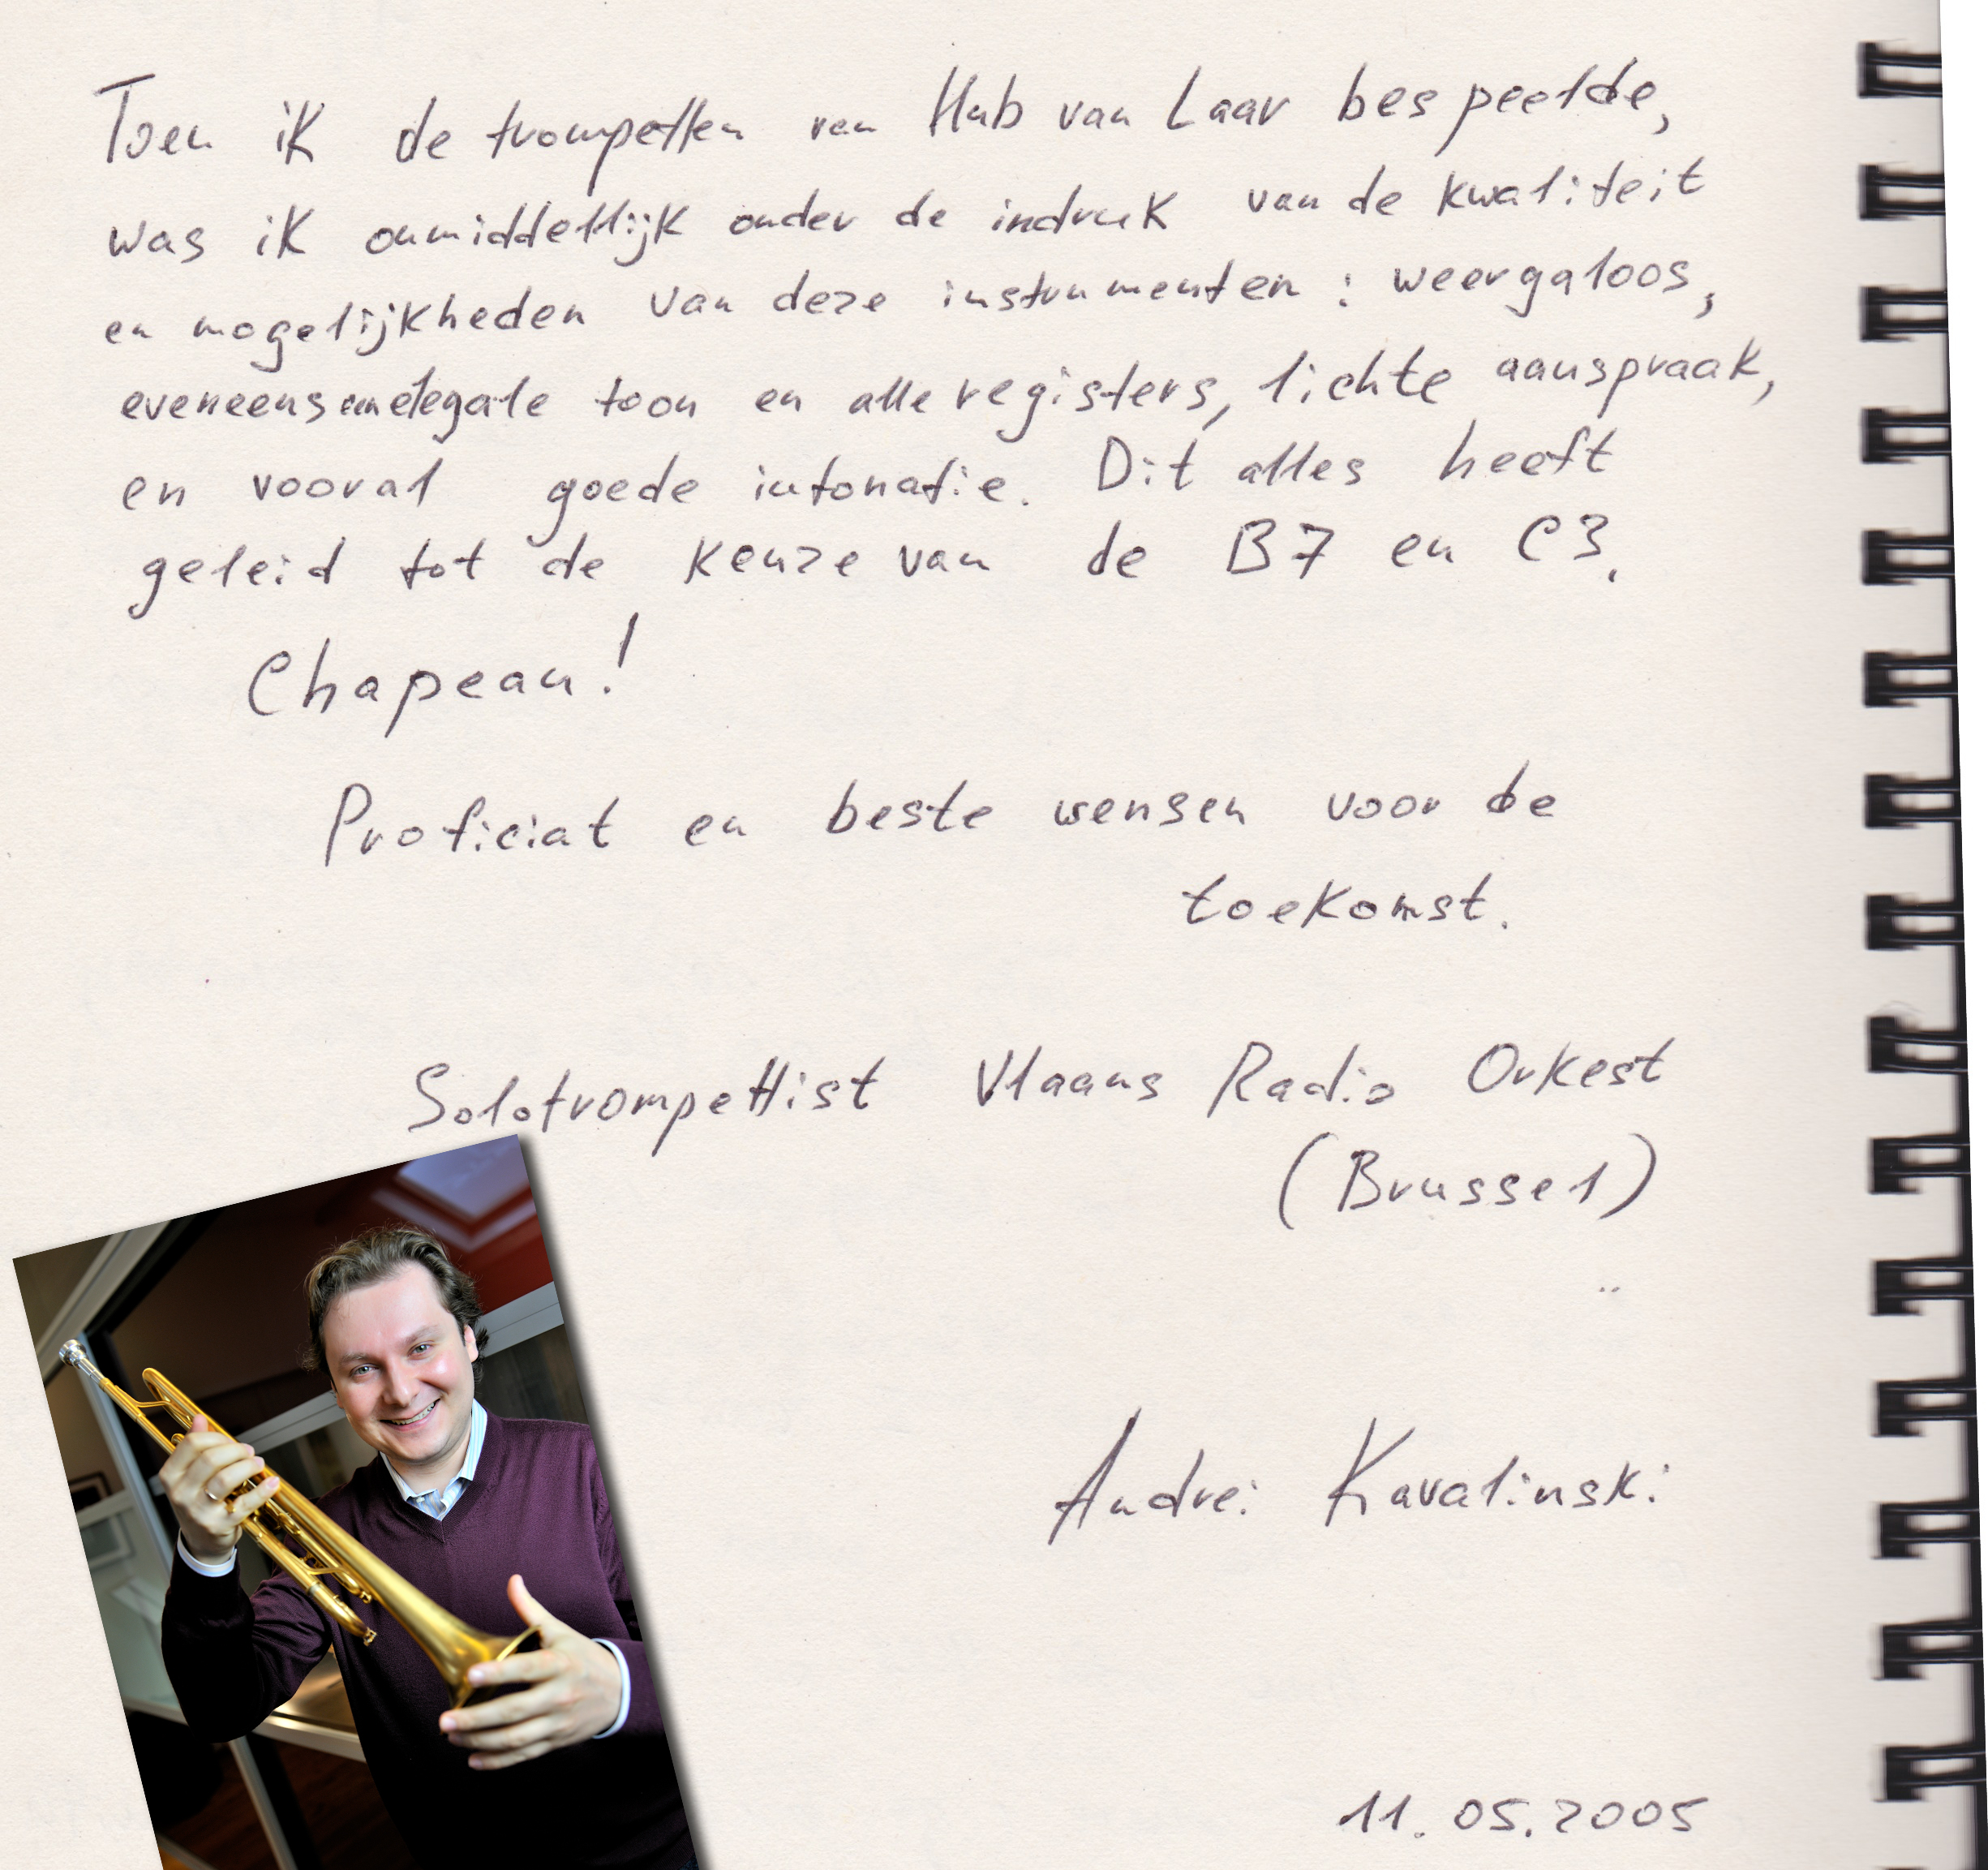 Toen ik de trompetten van Hub van Laar bespeelde,
was ik onmiddellijk onder de indruk van de kwaliteit
en mogelijkheden van deze instrumenten : weergaloos,
eveneens een egale toon en alle registers, lichte aanspraak,
en vooral goede intonatie. Dit alles heeft
geleid tot de keuze van de B7 en C3.
Chapeau!
Proficiat en beste wensen voor de
toekomst.
Solotrompettist Vlaams Radio Orkest
(Brussel)
Andrei Kavalinski
11.05.2005